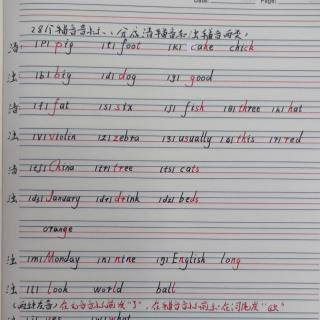 Date: Page:
28个辅音音标,分成清辅音和浊辅音两类:
清: /p/ pig /t/ foot /k/ cake chick
浊: /b/ big /d/ dog /g/ good
清: /f/ fat /s/ six /ʃ/ fish /θ/ three /h/ hat
浊: /v/ violin /z/ zebra /ʒ/ usually /ð/ this /r/ red
清 /tʃ/ China /tr/ tree /ts/ cats
浊 /dʒ/ January /dr/ drink /dz/ beds
orange
浊 /m/ Monday /n/ nine /ŋ/ English long
浊: /l/ look world ball
在元音音标前发"了",在辅音音标前或在词尾发"欧"
yes what